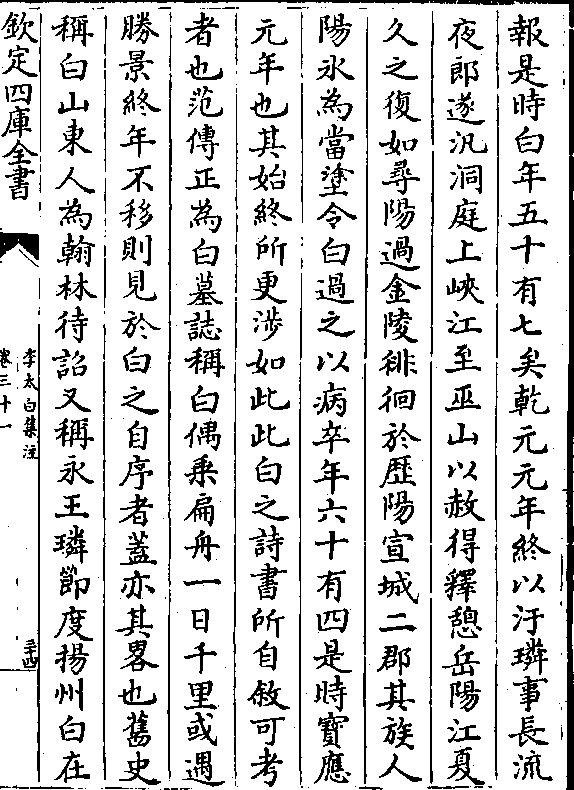 報是時白年五十有七矣乾元元年終以汙璘事長流
夜郎遂汎洞庭上峽江至巫山以赦得釋憩岳陽江夏
久之復如尋陽過金陵徘徊於歷陽宣城二郡其族人
陽氷為當塗令白過之以病卒年六十有四是時寶應
元年也其始終所更涉如此此白之詩書所自敘可考
者也范傳正為白墓誌稱白偶乘扁舟一日千里或遇
勝景終年不移則見於白之自序者蓋亦其畧也舊史
稱白山東人為翰林待詔又稱永王璘節度揚州白在
欽定四庫全書
李太白集注
卷三十一
三十四